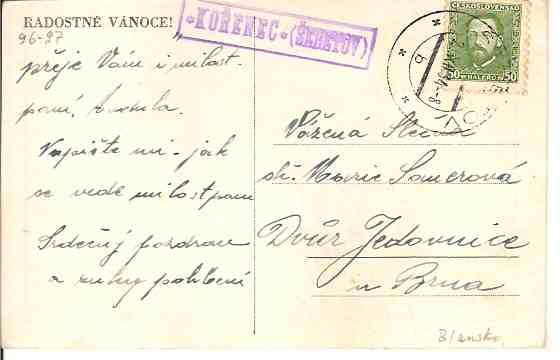 RADOSTNÉ VÁNOCE!
96-27
*KOŘENEC* (ŠEBETOV)
ČESKOSLOVENSKO
50 HALÉŘŮ 50
přeje Vám i milost-
paní.
Napište mi - jak
se vede milostpaní
Srdečný pozdrav
a ruky políbení
Vážená Slečna
sl. Marie Sauerová
Dvůr Jedovnice
u Brna
Blansko,